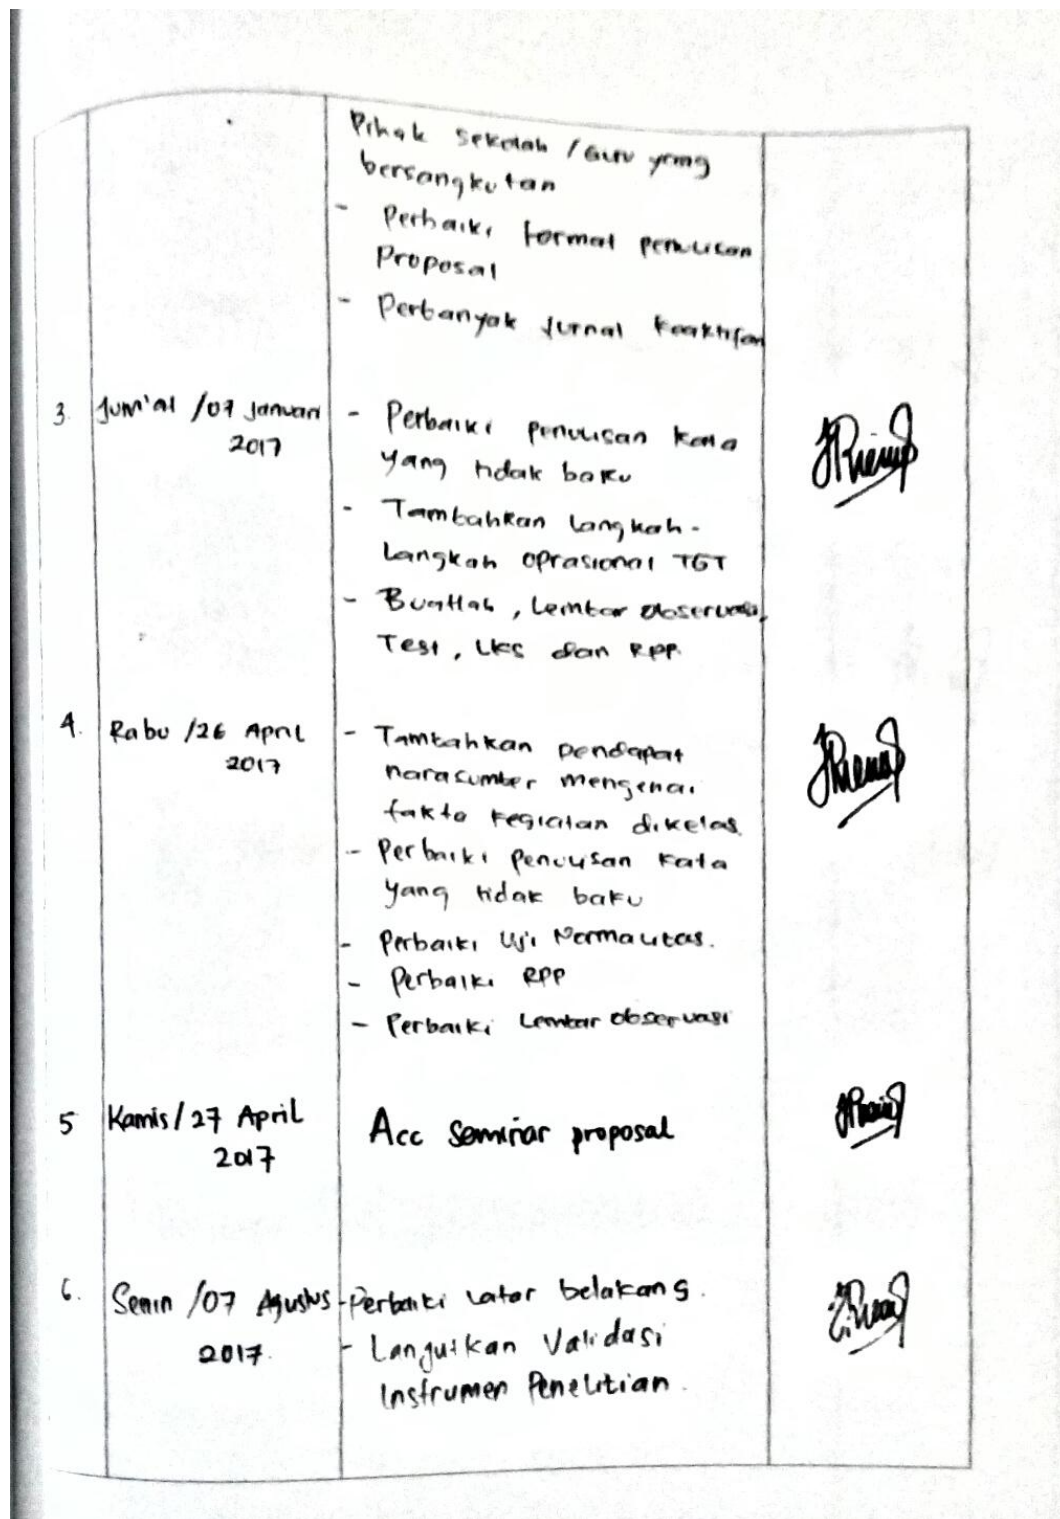 Pihak Sekolah / Guru yang
bersangkutan
- Perbaiki format penulisan
Proposal
- Perbanyak jurnal keaktifan
3. Jum'at /07 Januari
2017
- Perbaiki penulisan kata
yang tidak baku
- Tambahkan langkah-
langkah oprasional TGT
- Buatlah, Lembar observasi,
Test, LKS dan RPP.
4. Rabu /26 April
2017
- Tambahkan pendapat
narasumber mengenai
fakta kegiatan dikelas.
- Perbaiki penulisan kata
yang tidak baku
- Perbaiki Uji Normalitas.
- Perbaiki RPP
- Perbaiki Lembar observasi
5 Kamis / 27 April
2017
Acc seminar proposal
6. Senin /07 Agustus
2017.
- Perbaiki latar belakang.
- Lanjutkan Validasi
Instrumen Penelitian.